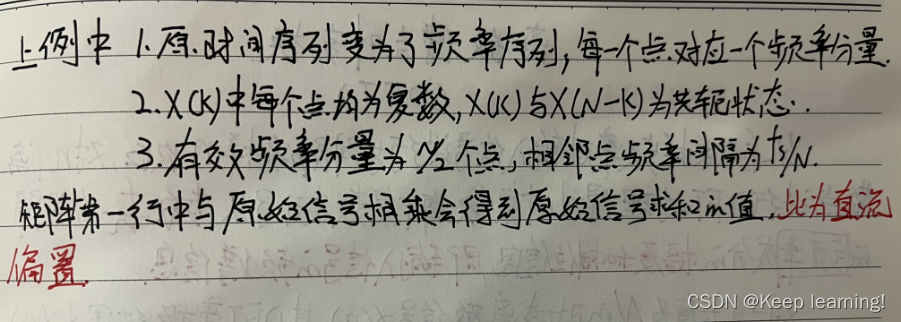 上例中 1.原时间序列变为了频率序列,每一个点对应一个频率分量.
2.X(K)中每个点均为复数,X(K)与X(N-K)为共轭状态.
3.有效频率分量为N/2个点,相邻点频率间隔为fs/N.
矩阵第一行中与原始信号相乘会得到原始信号求和的值,此为直流
偏置.
CSDN @Keep learning!